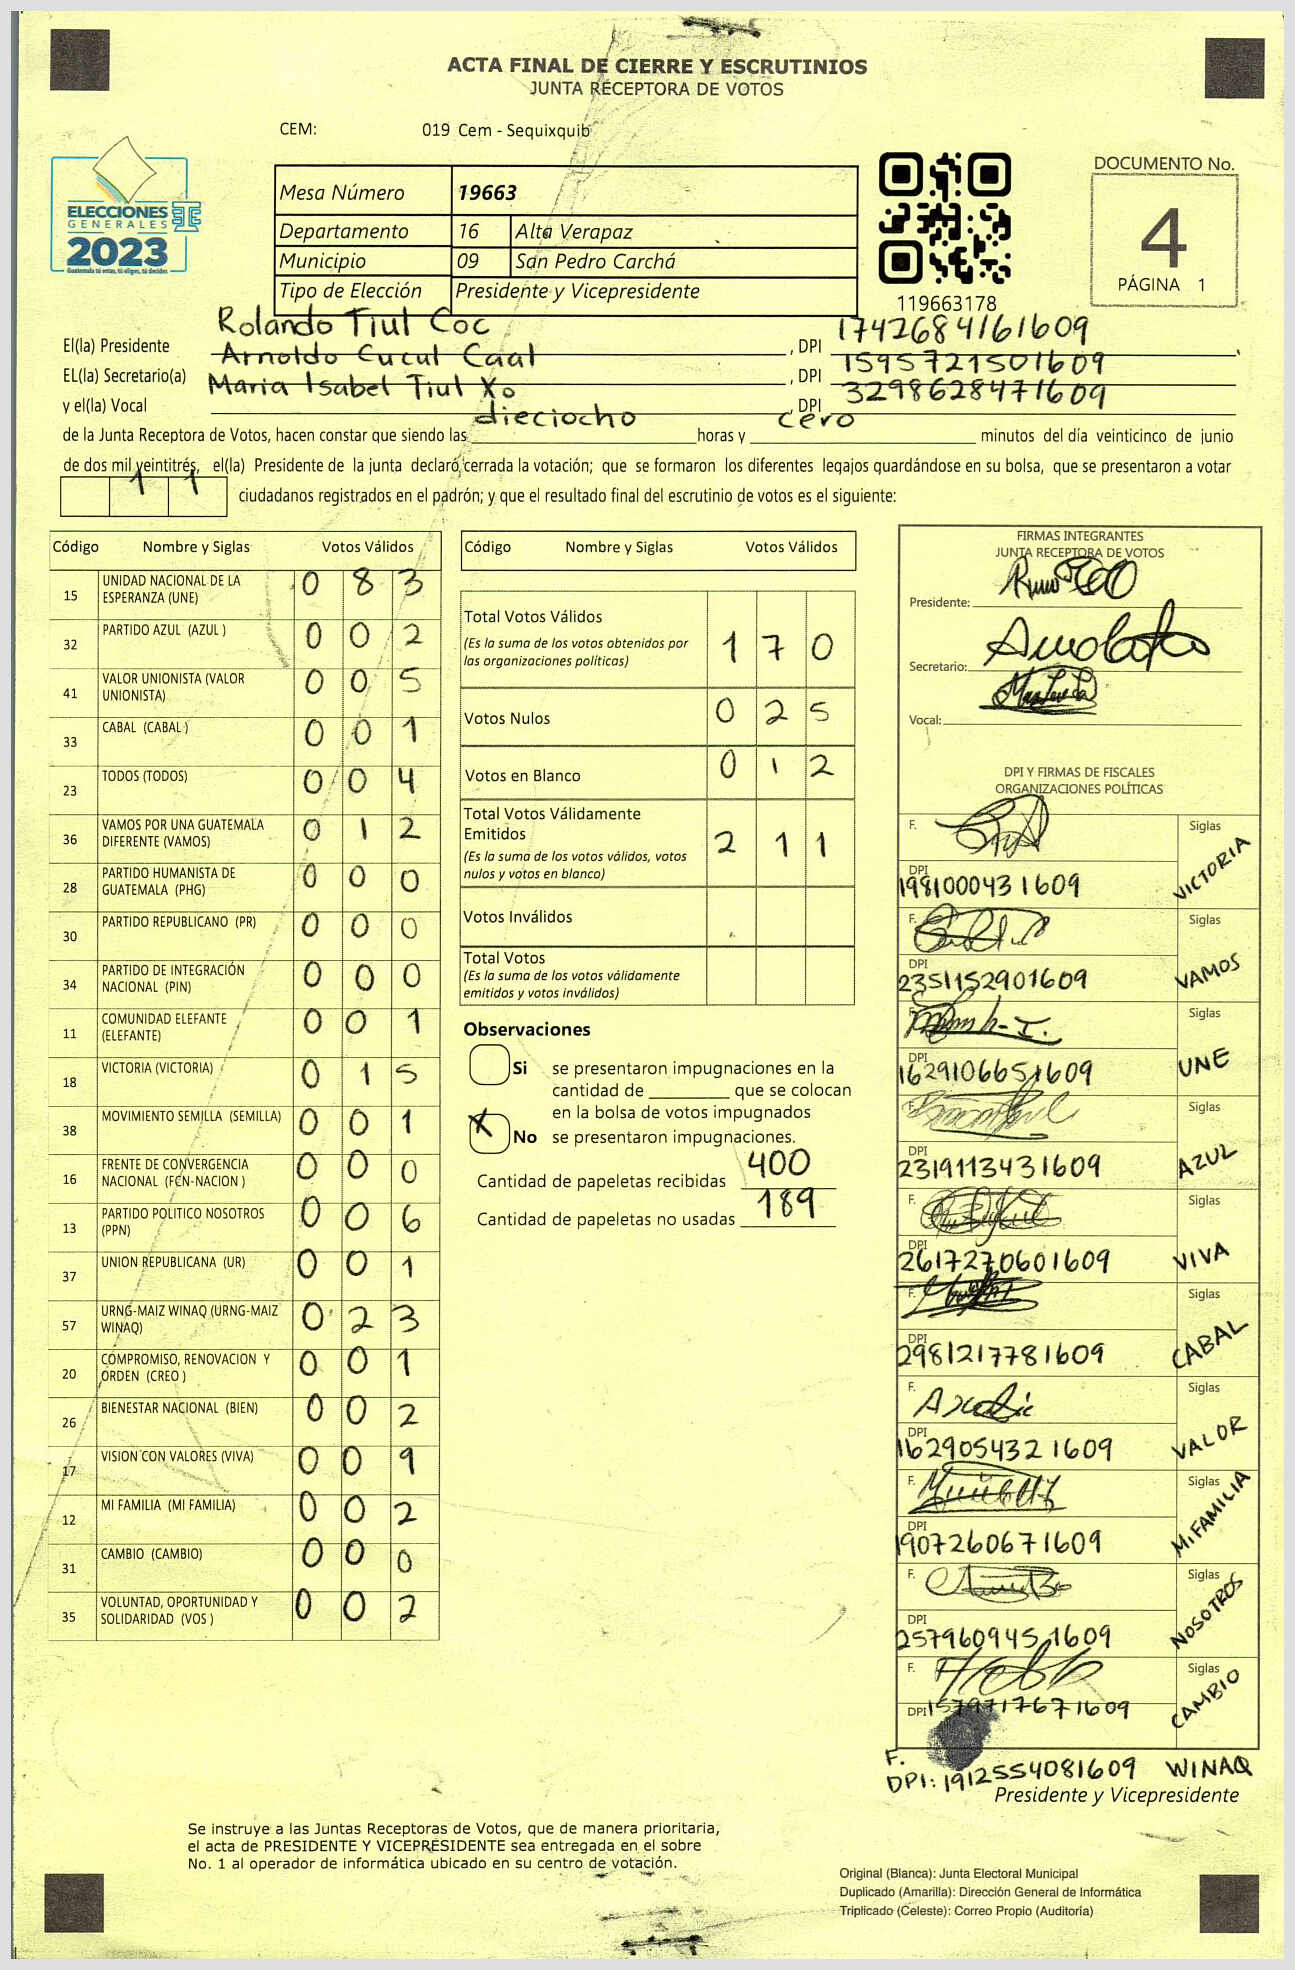 ACTA FINAL DE CIERRE Y ESCRUTINIOS
JUNTA RECEPTORA DE VOTOS
CEM: 019 Cem - Sequixquib
ELECCIONES
GENERALES
2023
Guatemala tú votas, tú eliges, tú decides
Mesa Número 19663
Departamento 16 Alta Verapaz
Municipio 09 San Pedro Carchá
Tipo de Elección Presidente y Vicepresidente
119663178
DOCUMENTO No.
4
PÁGINA 1
El(la) Presidente Rolando Tiul Coc , DPI 1742684161609
EL(la) Secretario(a) Arnoldo Cucul Caal , DPI 1595721501609
y el(la) Vocal Maria Isabel Tiul Xo , DPI 3298628471609
de la Junta Receptora de Votos, hacen constar que siendo las dieciocho horas y cero minutos del día veinticinco de junio
de dos mil veintitrés, el(la) Presidente de la junta declaró cerrada la votación; que se formaron los diferentes legajos guardándose en su bolsa, que se presentaron a votar
1 1 ciudadanos registrados en el padrón; y que el resultado final del escrutinio de votos es el siguiente:
Código Nombre y Siglas Votos Válidos
15 UNIDAD NACIONAL DE LA ESPERANZA (UNE) 0 8 3
32 PARTIDO AZUL (AZUL ) 0 0 2
41 VALOR UNIONISTA (VALOR UNIONISTA) 0 0 5
33 CABAL (CABAL ) 0 0 1
23 TODOS (TODOS) 0 0 4
36 VAMOS POR UNA GUATEMALA DIFERENTE (VAMOS) 0 1 2
28 PARTIDO HUMANISTA DE GUATEMALA (PHG) 0 0 0
30 PARTIDO REPUBLICANO (PR) 0 0 0
34 PARTIDO DE INTEGRACIÓN NACIONAL (PIN) 0 0 0
11 COMUNIDAD ELEFANTE (ELEFANTE) 0 0 1
18 VICTORIA (VICTORIA) 0 1 5
38 MOVIMIENTO SEMILLA (SEMILLA) 0 0 1
16 FRENTE DE CONVERGENCIA NACIONAL (FCN-NACION ) 0 0 0
13 PARTIDO POLITICO NOSOTROS (PPN) 0 0 6
37 UNION REPUBLICANA (UR) 0 0 1
57 URNG-MAIZ WINAQ (URNG-MAIZ WINAQ) 0 2 3
20 COMPROMISO, RENOVACION Y ORDEN (CREO ) 0 0 1
26 BIENESTAR NACIONAL (BIEN) 0 0 2
17 VISION CON VALORES (VIVA) 0 0 9
12 MI FAMILIA (MI FAMILIA) 0 0 2
31 CAMBIO (CAMBIO) 0 0 0
35 VOLUNTAD, OPORTUNIDAD Y SOLIDARIDAD (VOS ) 0 0 2
Código Nombre y Siglas Votos Válidos
Total Votos Válidos
(Es la suma de los votos obtenidos por
las organizaciones políticas) 1 7 0
Votos Nulos 0 2 5
Votos en Blanco 0 1 2
Total Votos Válidamente
Emitidos
(Es la suma de los votos válidos, votos
nulos y votos en blanco) 2 1 1
Votos Inválidos
Total Votos
(Es la suma de los votos válidamente
emitidos y votos inválidos)
Observaciones
Si se presentaron impugnaciones en la
cantidad de ________ que se colocan
en la bolsa de votos impugnados
X No se presentaron impugnaciones.
Cantidad de papeletas recibidas 400
Cantidad de papeletas no usadas 189
FIRMAS INTEGRANTES
JUNTA RECEPTORA DE VOTOS
Presidente:
Secretario:
Vocal:
DPI Y FIRMAS DE FISCALES
ORGANIZACIONES POLÍTICAS
F. Siglas VICTORIA
DPI 1981000431609
F. Siglas VAMOS
DPI 2351152901609
F. Siglas UNE
DPI 1629106651609
F. Siglas AZUL
DPI 2319113431609
F. Siglas VIVA
DPI 2617270601609
F. Siglas CABAL
DPI 2981217781609
F. Siglas VALOR
DPI 1629054321609
F. Siglas MI FAMILIA
DPI 1907260671609
F. Siglas NOSOTROS
DPI 2579609451609
F. Siglas CAMBIO
DPI 1579717671609
F.
DPI: 1912554081609 WINAQ
Presidente y Vicepresidente
Se instruye a las Juntas Receptoras de Votos, que de manera prioritaria,
el acta de PRESIDENTE Y VICEPRESIDENTE sea entregada en el sobre
No. 1 al operador de informática ubicado en su centro de votación.
Original (Blanca): Junta Electoral Municipal
Duplicado (Amarilla): Dirección General de Informática
Triplicado (Celeste): Correo Propio (Auditoría)